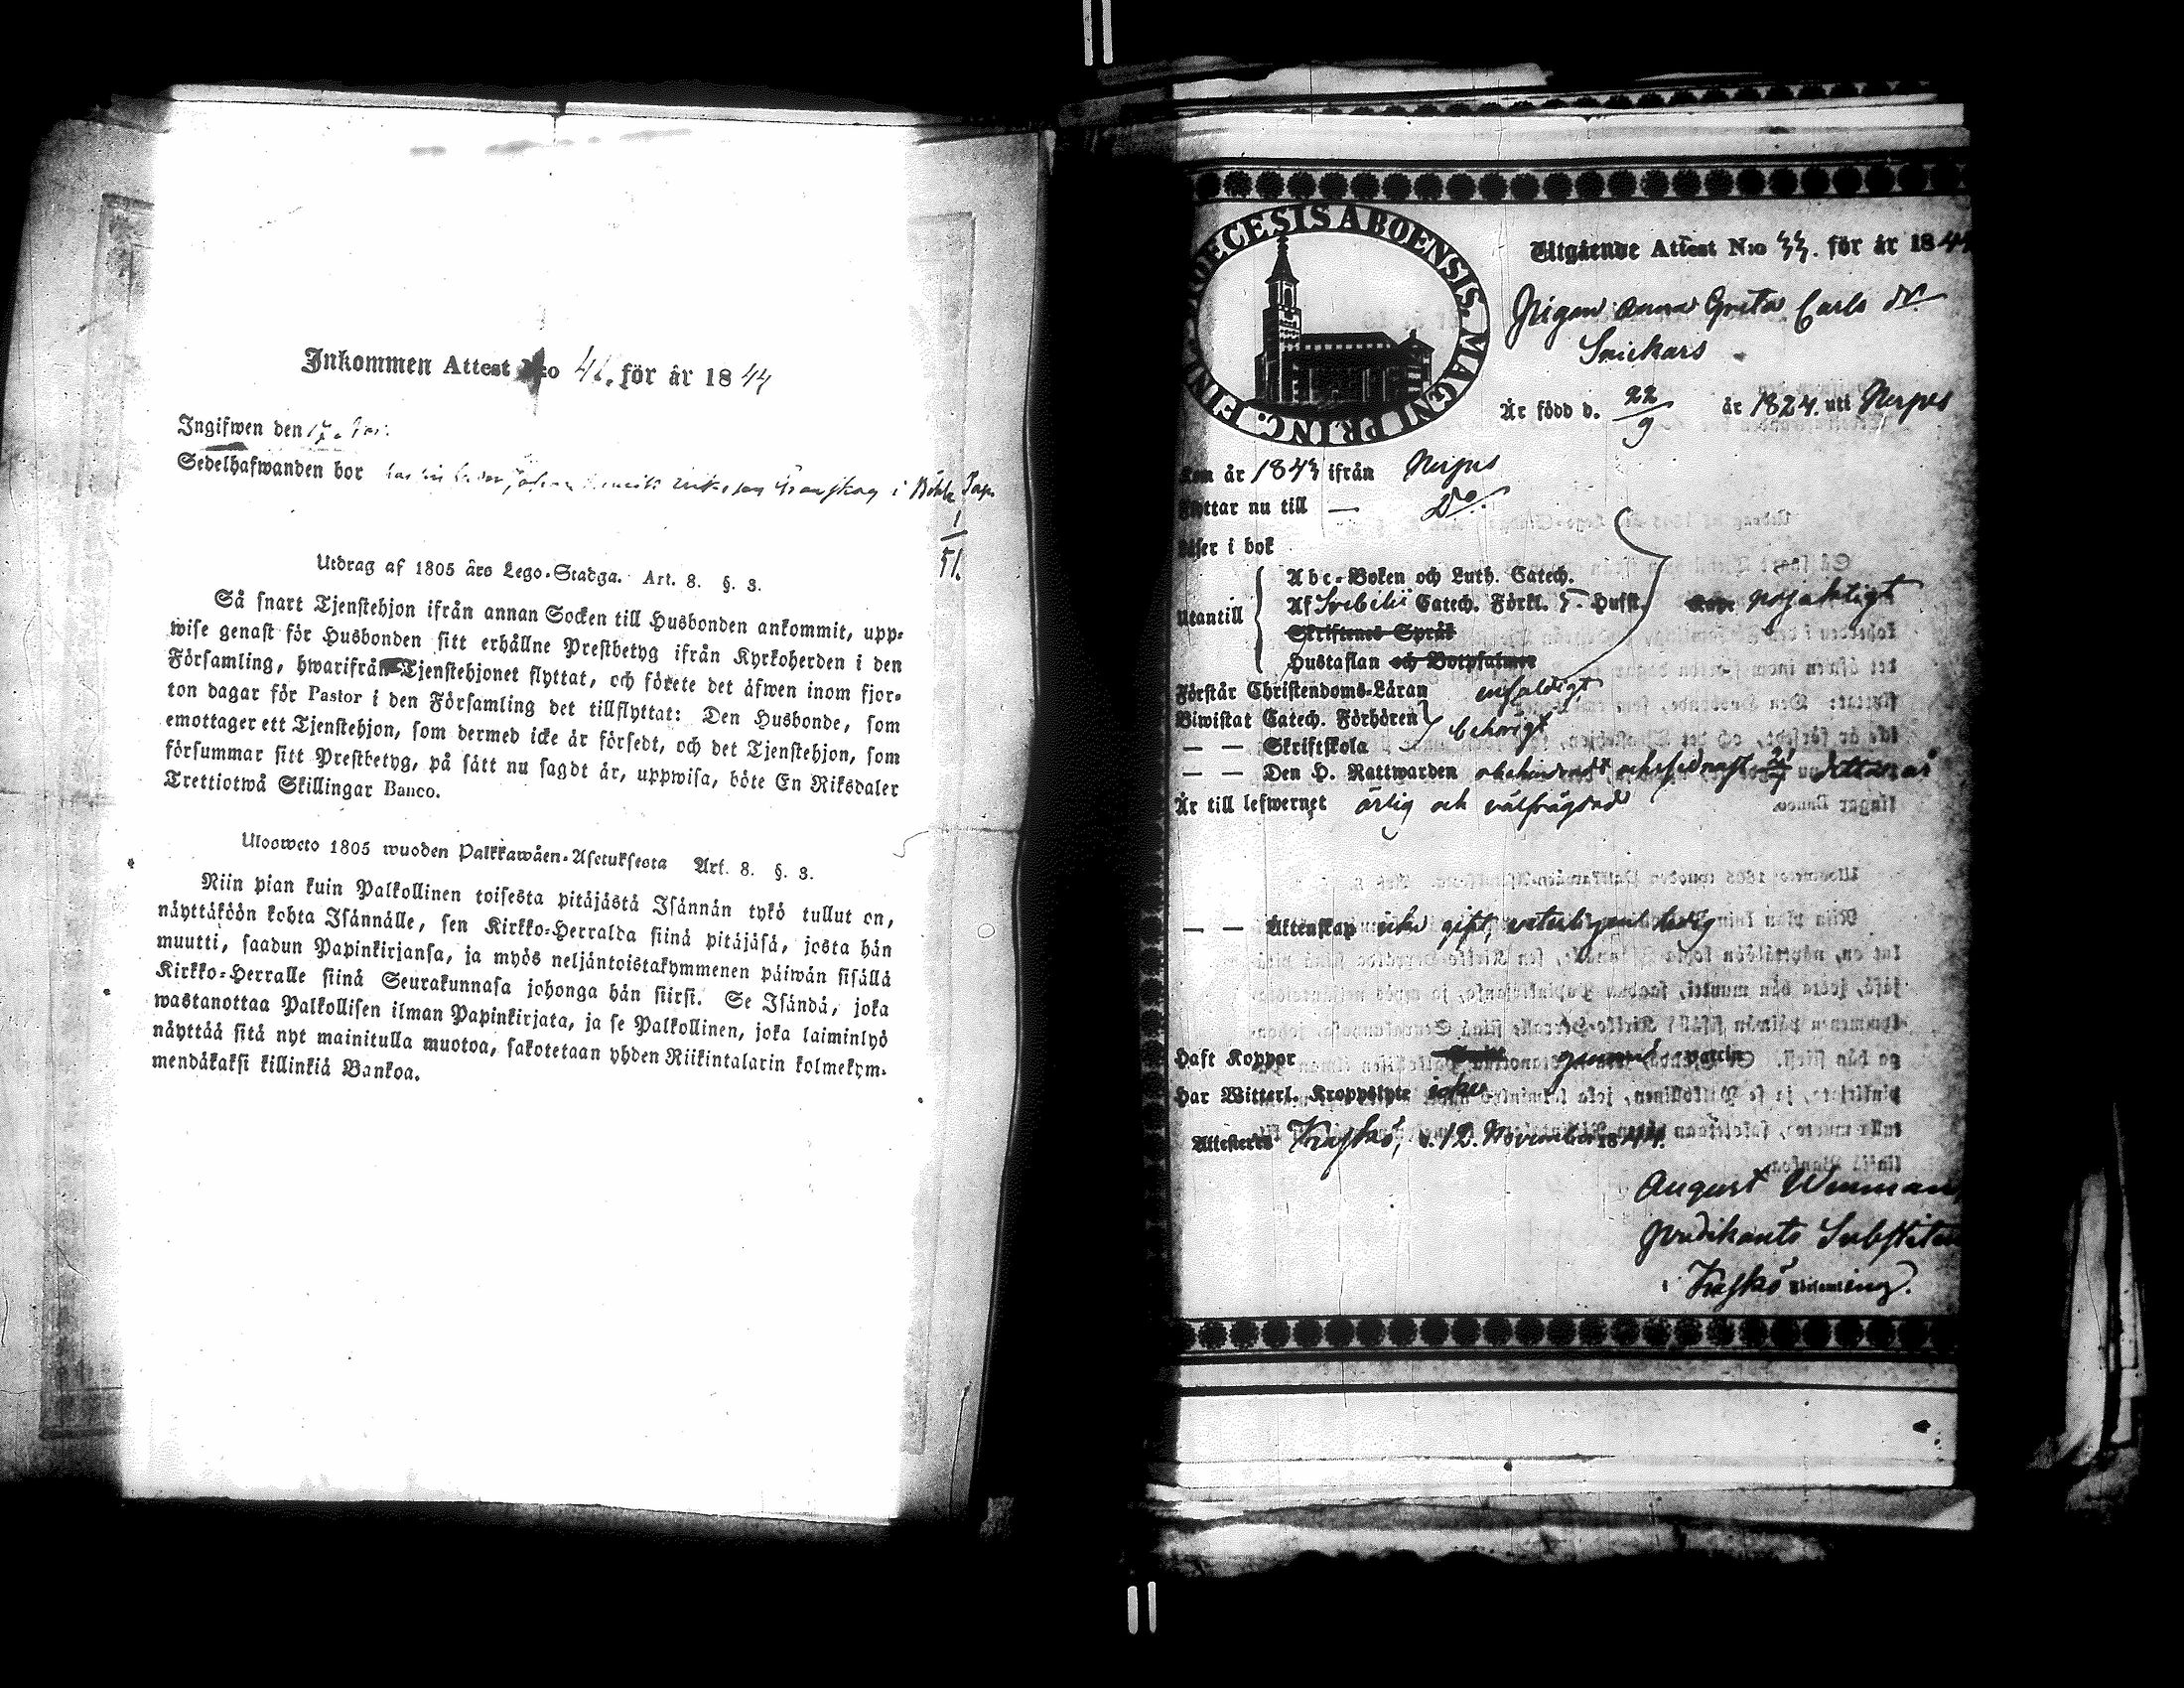 Inkommen Attest N:o 41. för år 1844
Ingifwen den 17.
Sedelhafwanden bor i
1
51.
Utdrag af 1805 års Lego-Stadga. Art. 8. §. 3.
Så snart Tjenstehjon ifrån annan Socken till Husbonden ankommit, upp-
wise genast för Husbonden sitt erhållne Prestbetyg ifrån Kyrkoherden i den
Församling, hwarifrån Tjenstehjonet flyttat, och förete det äfwen inom fjor-
ton dagar för Pastor i den Församling det tillflyttat: Den Husbonde, som
emottager ett Tjenstehjon, som dermed icke är försedt, och det Tjenstehjon, som
försummar sitt Prestbetyg, på sätt nu sagdt är, uppwisa, böte En Riksdaler
Trettiotwå Skillingar Banco.
Ulosweto 1805 wuoden Palkkawäen-Asetuksesta Art. 8. §. 3.
Niin pian kuin Palkollinen toisesta pitäjästä Isännän tykö tullut on,
näyttäköön kohta Isännälle, sen Kirkko-Herralda siinä pitäjäsä, josta hän
muutti, saadun Papinkirjansa, ja myös neljäntoistakymmenen päiwän sisällä
Kirkko-Herralle siinä Seurakunnasa johonga hän siirsi. Se Isändä, joka
wastanottaa Palkollisen ilman Papinkirjata, ja se Palkollinen, joka laiminlyö
näyttää sitä nyt mainitulla muotoa, sakotetaan yhden Riikintalarin kolmekym-
mendäkaksi killinkiä Bankoa.
DIOECESIS ABOENSIS. MAGNI PRINC. FINL.
Utgående Attest N:o 44. för år 1844
Pigan Anna Greta Carls dr.
Snickars
Är född d. 22/9 år 1824. uti Nerpes
Kom år 1843 ifrån Nerpes
Flyttar nu till — Do.
Läser i bok
Abc-Boken och Luth. Catech.
Utantill Af Svebelii Catech. Förkl. 5. Hufst. nöjaktigt
Skriftenes Språk
Hustaflan och Botpsalmer
Förstår Christendoms-Läran enfaldigt
Biwistat Catech. Förhören behörigt
— — Skriftskola
— — Den H. Nattwarden obehindradt och sednast detta år
Är till lefwernet ärlig och välfrägdad
— — Äktenskap icke gift, veterligen ledig
Haft Koppor
Har Witterl. Kroppslyte icke
Attesteras Kaskö, d. 12. November 1844.
August Wenman,
Predikants Substitut
i Kaskö Församling.